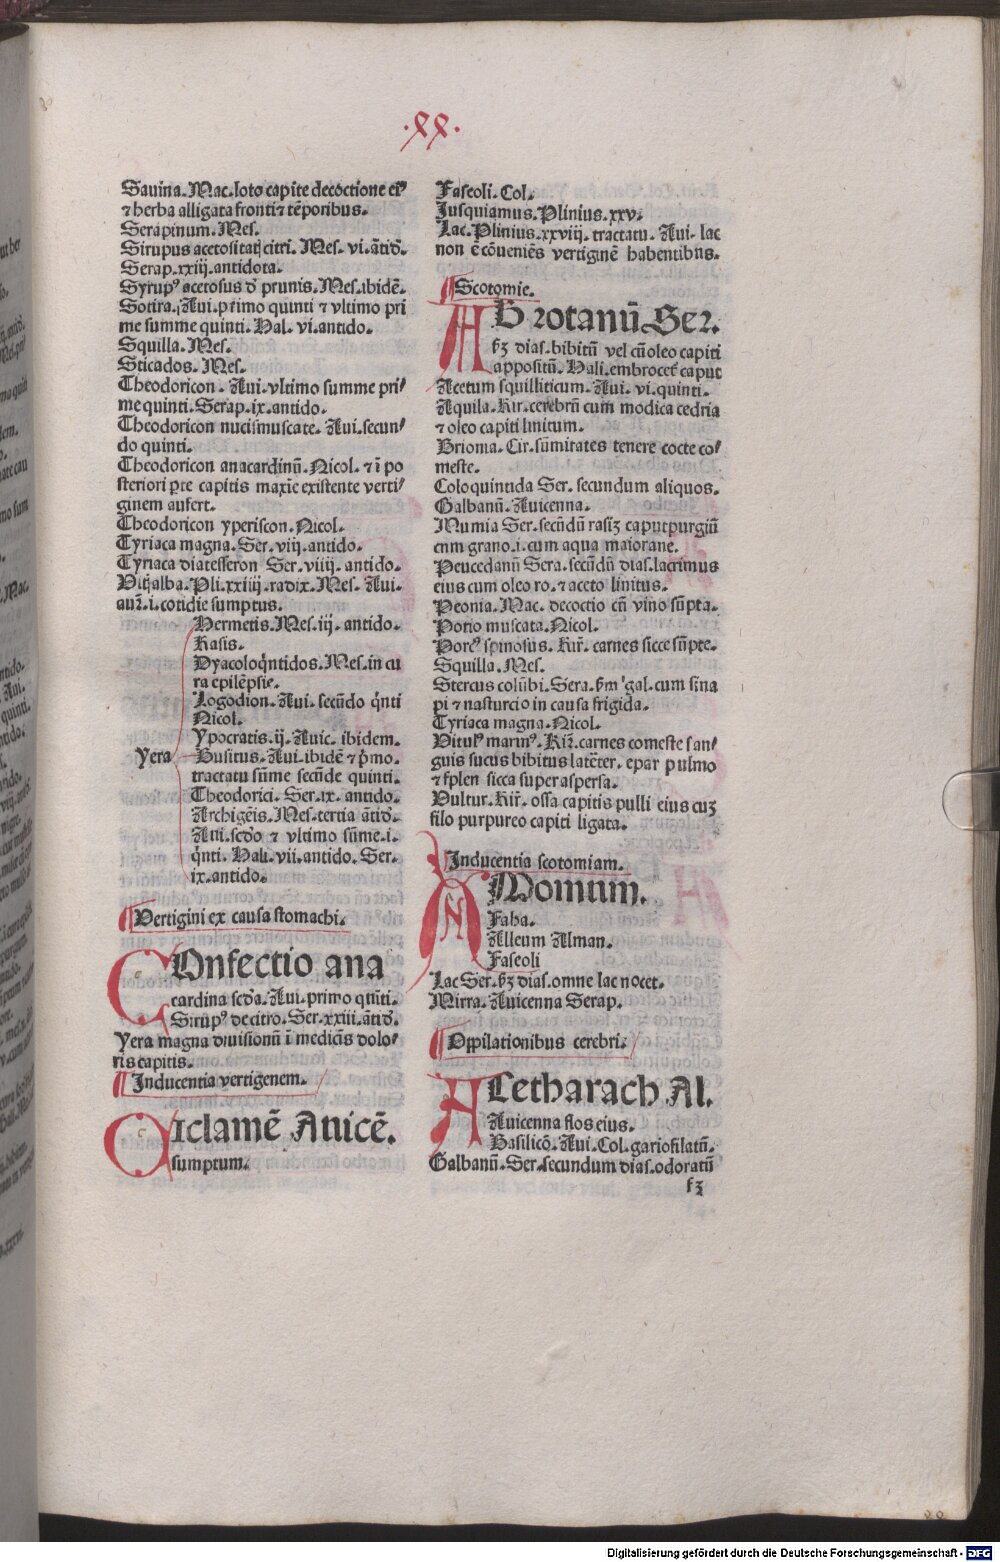 .XX.
Savina. Mac. loto capite decoctione ei⁹
⁊ herba alligata fronti ⁊ tēporibus.
Serapinum. Mes.
Sirupus acetositatis citri. Mes. vi. ātid̄.
Serap. xxiij. antidota.
Syrup⁹ acetosus d̄ prunis. Mes. ibidē.
Sotira. Aui. primo quinti ⁊ vltimo pri
me summe quinti. Hal. vi. antido.
Squilla. Mes.
Sticados. Mes.
Theodoricon. Aui. vltimo summe pri⸗
me quinti. Serap. ix. antido.
Theodoricon nucismuscate. Aui. secun⸗
do quinti.
Theodoricon anacardinū. Nicol. ⁊ ī po
steriori ꝑte capitis maxīe existente verti⸗
ginem aufert.
Theodoricon yperiscon. Nicol.
Tyriaca magna. Ser. viij. antido.
Tyriaca diatesseron Ser. viiij. antido.
Vitisalba. Pli. xxiiij. radix. Mes. Aui.
aur̄. i. cotidie sumptus.
Hermetis. Mes. iij. antido.
Rasis.
Dyacoloq̄ntidos. Mes. in cu
ra epilēpsie.
Logodion. Aui. secūdo q̄nti
Nicol.
Ypocratis. ij. Auic. ibidem.
Yera Husitus. Aui. ibidē ⁊ p̄mo.
tractatu sūme secūde quinti.
Theodorici. Ser. ix. antido.
Archigeīs. Mes. tertia ātid̄.
Aui. scd̄o ⁊ vltimo sūme. i.
q̄nti. Hali. vii. antido. Ser.
ix. antido.
Vertigini ex causa stomachi.
COnfectio ana
cardina scd̄a. Aui. primo qn̄ti.
Sirup⁹ de citro. Ser. xxiii. ātid̄.
Yera magna diuisionū ī medicīs dolo⸗
ris capitis.
Inducentia vertigenem.
CIclamē Auicē.
sumptum.
Faseoli. Col.
Jusquiamus. Plinius. xxv.
Lac. Plinius. xxviij. tractatu. Aui. lac
non ē cōueniēs vertiginē habentibus.
Scotomie.
ABrotanū. Ser.
ẜꝫ dias. bibitū vel cū oleo capiti
appositū. Hali. embrocet̄ caput
Acetum squilliticum. Aui. vi. quinti.
Aquila. Kir. cerebrū cum modica cedria
⁊ oleo capiti linitum.
Brionia. Cir. sūmitates tenere cocte co⸗
meste.
Coloquintida Ser. secundum aliquos.
Galbanū. Auicenna.
Mumia Ser. secūdū rasiꝫ caputpurgiū
cum grano. i. cum aqua maiorane.
Peucedanū Sera. secūdū dias. lacrimus
eius cum oleo ro. ⁊ aceto linitus.
Peonia. Mac. decoctio cū vino sūpta.
Potio muscata. Nicol.
Porc⁹ spinosus. Kir̄. carnes sicce sūpte.
Squilla. Mes.
Stercus colūbi. Sera. ẜm gal. cum sina
pi ⁊ nasturcio in causa frigida.
Tyriaca magna. Nicol.
Vitul⁹ marin⁹. Kir̄. carnes comeste san⸗
guis sucus bibitus latēter. epar pulmo
⁊ splen sicca super aspersa.
Vultur. Kir̄. ossa capitis pulli eius cuꝫ
filo purpureo capiti ligata.
Inducentia scotomiam.
AMomum.
Faba.
Alleum Alman.
Faseoli
Lac Ser. ẜꝫ dias. omne lac nocet.
Mirra. Auicenna Serap.
Oppilationibus cerebri.
ALetharach Al.
Auicenna flos eius.
Basilicō. Aui. Col. gariofilatū.
Galbanū. Ser. secundum dias. odoratū
ẜꝫ
Digitalisierung gefördert durch die Deutsche Forschungsgemeinschaft - DFG